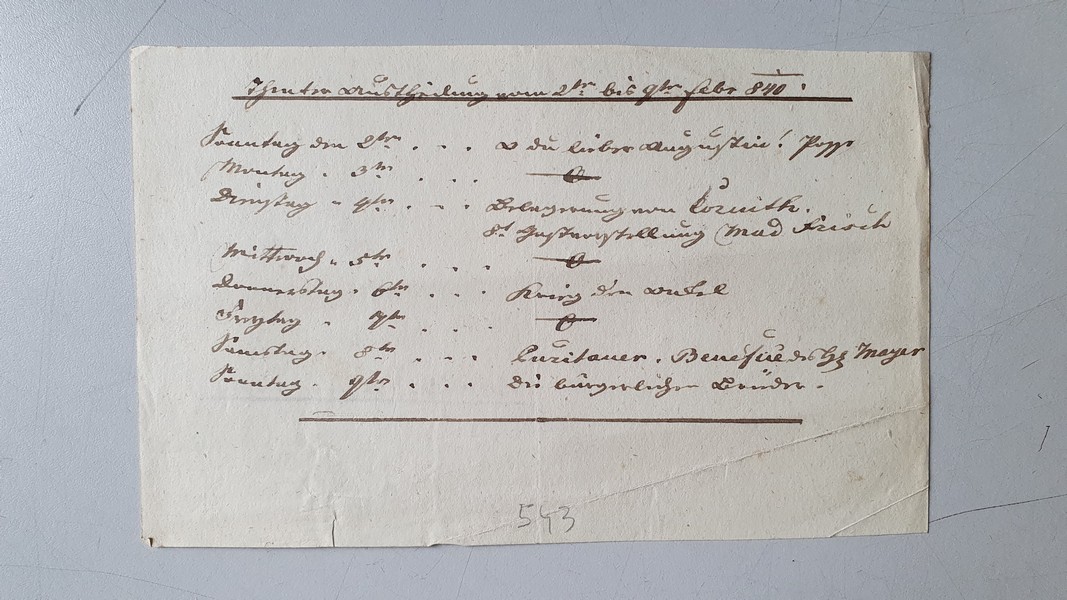 Theater Austheilung vom 2ten bis 9ten Febr 840.
Sonntag den 2ten . . . O du lieber Augustin! Posse
Montag " 3ten . . . 0
Dienstag " 4ten . . . Belagerung von Corinth.
8t Gastvorstellung Mad Frisch
Mittwoch " 5ten . . . 0
Donnerstag " 6ten . . . Krieg dem Onkel
Freytag " 7ten . . . 0
Samstag " 8ten . . . Puritaner. Benefice des Hr Mayer
Sonntag " 9ten . . . Die bürgerlichen Brüder.
543